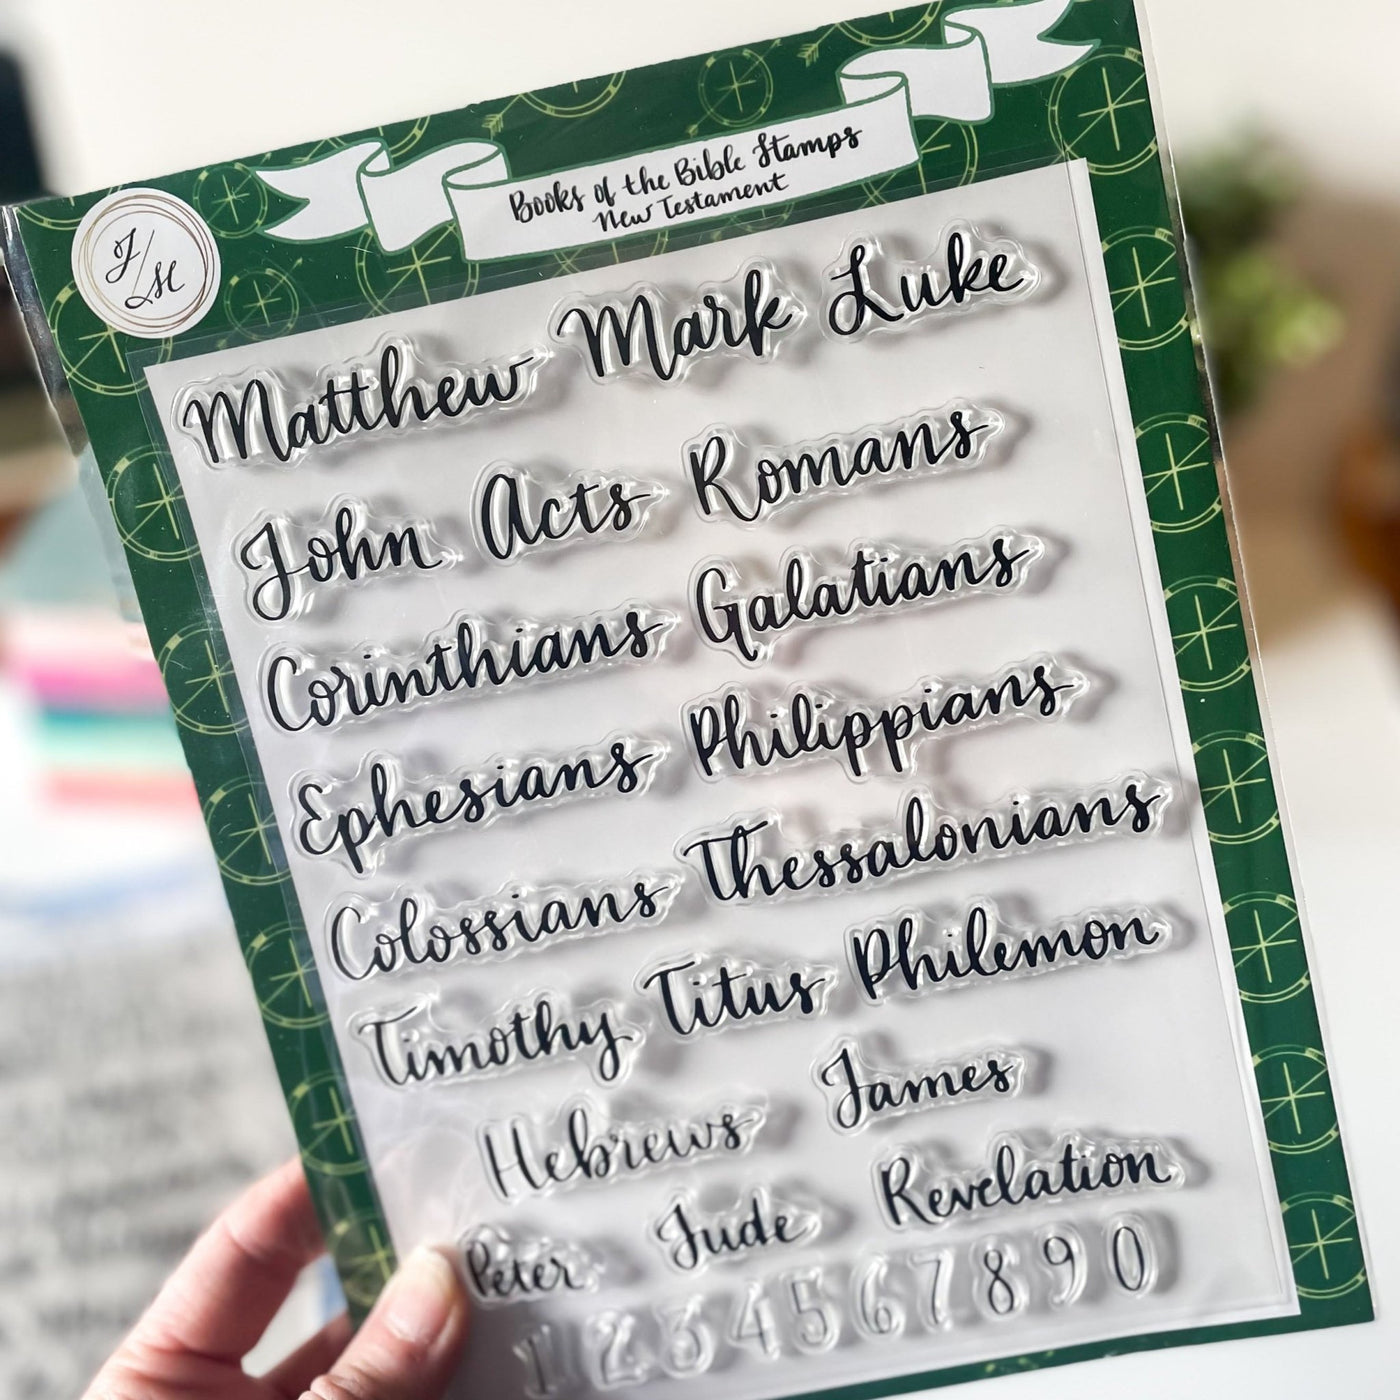 Books of the Bible Stamps
New Testament
J/M
Matthew Mark Luke
John Acts Romans
Corinthians Galatians
Ephesians Philippians
Colossians Thessalonians
Timothy Titus Philemon
Hebrews James
Peter Jude Revelation
1 2 3 4 5 6 7 8 9 0